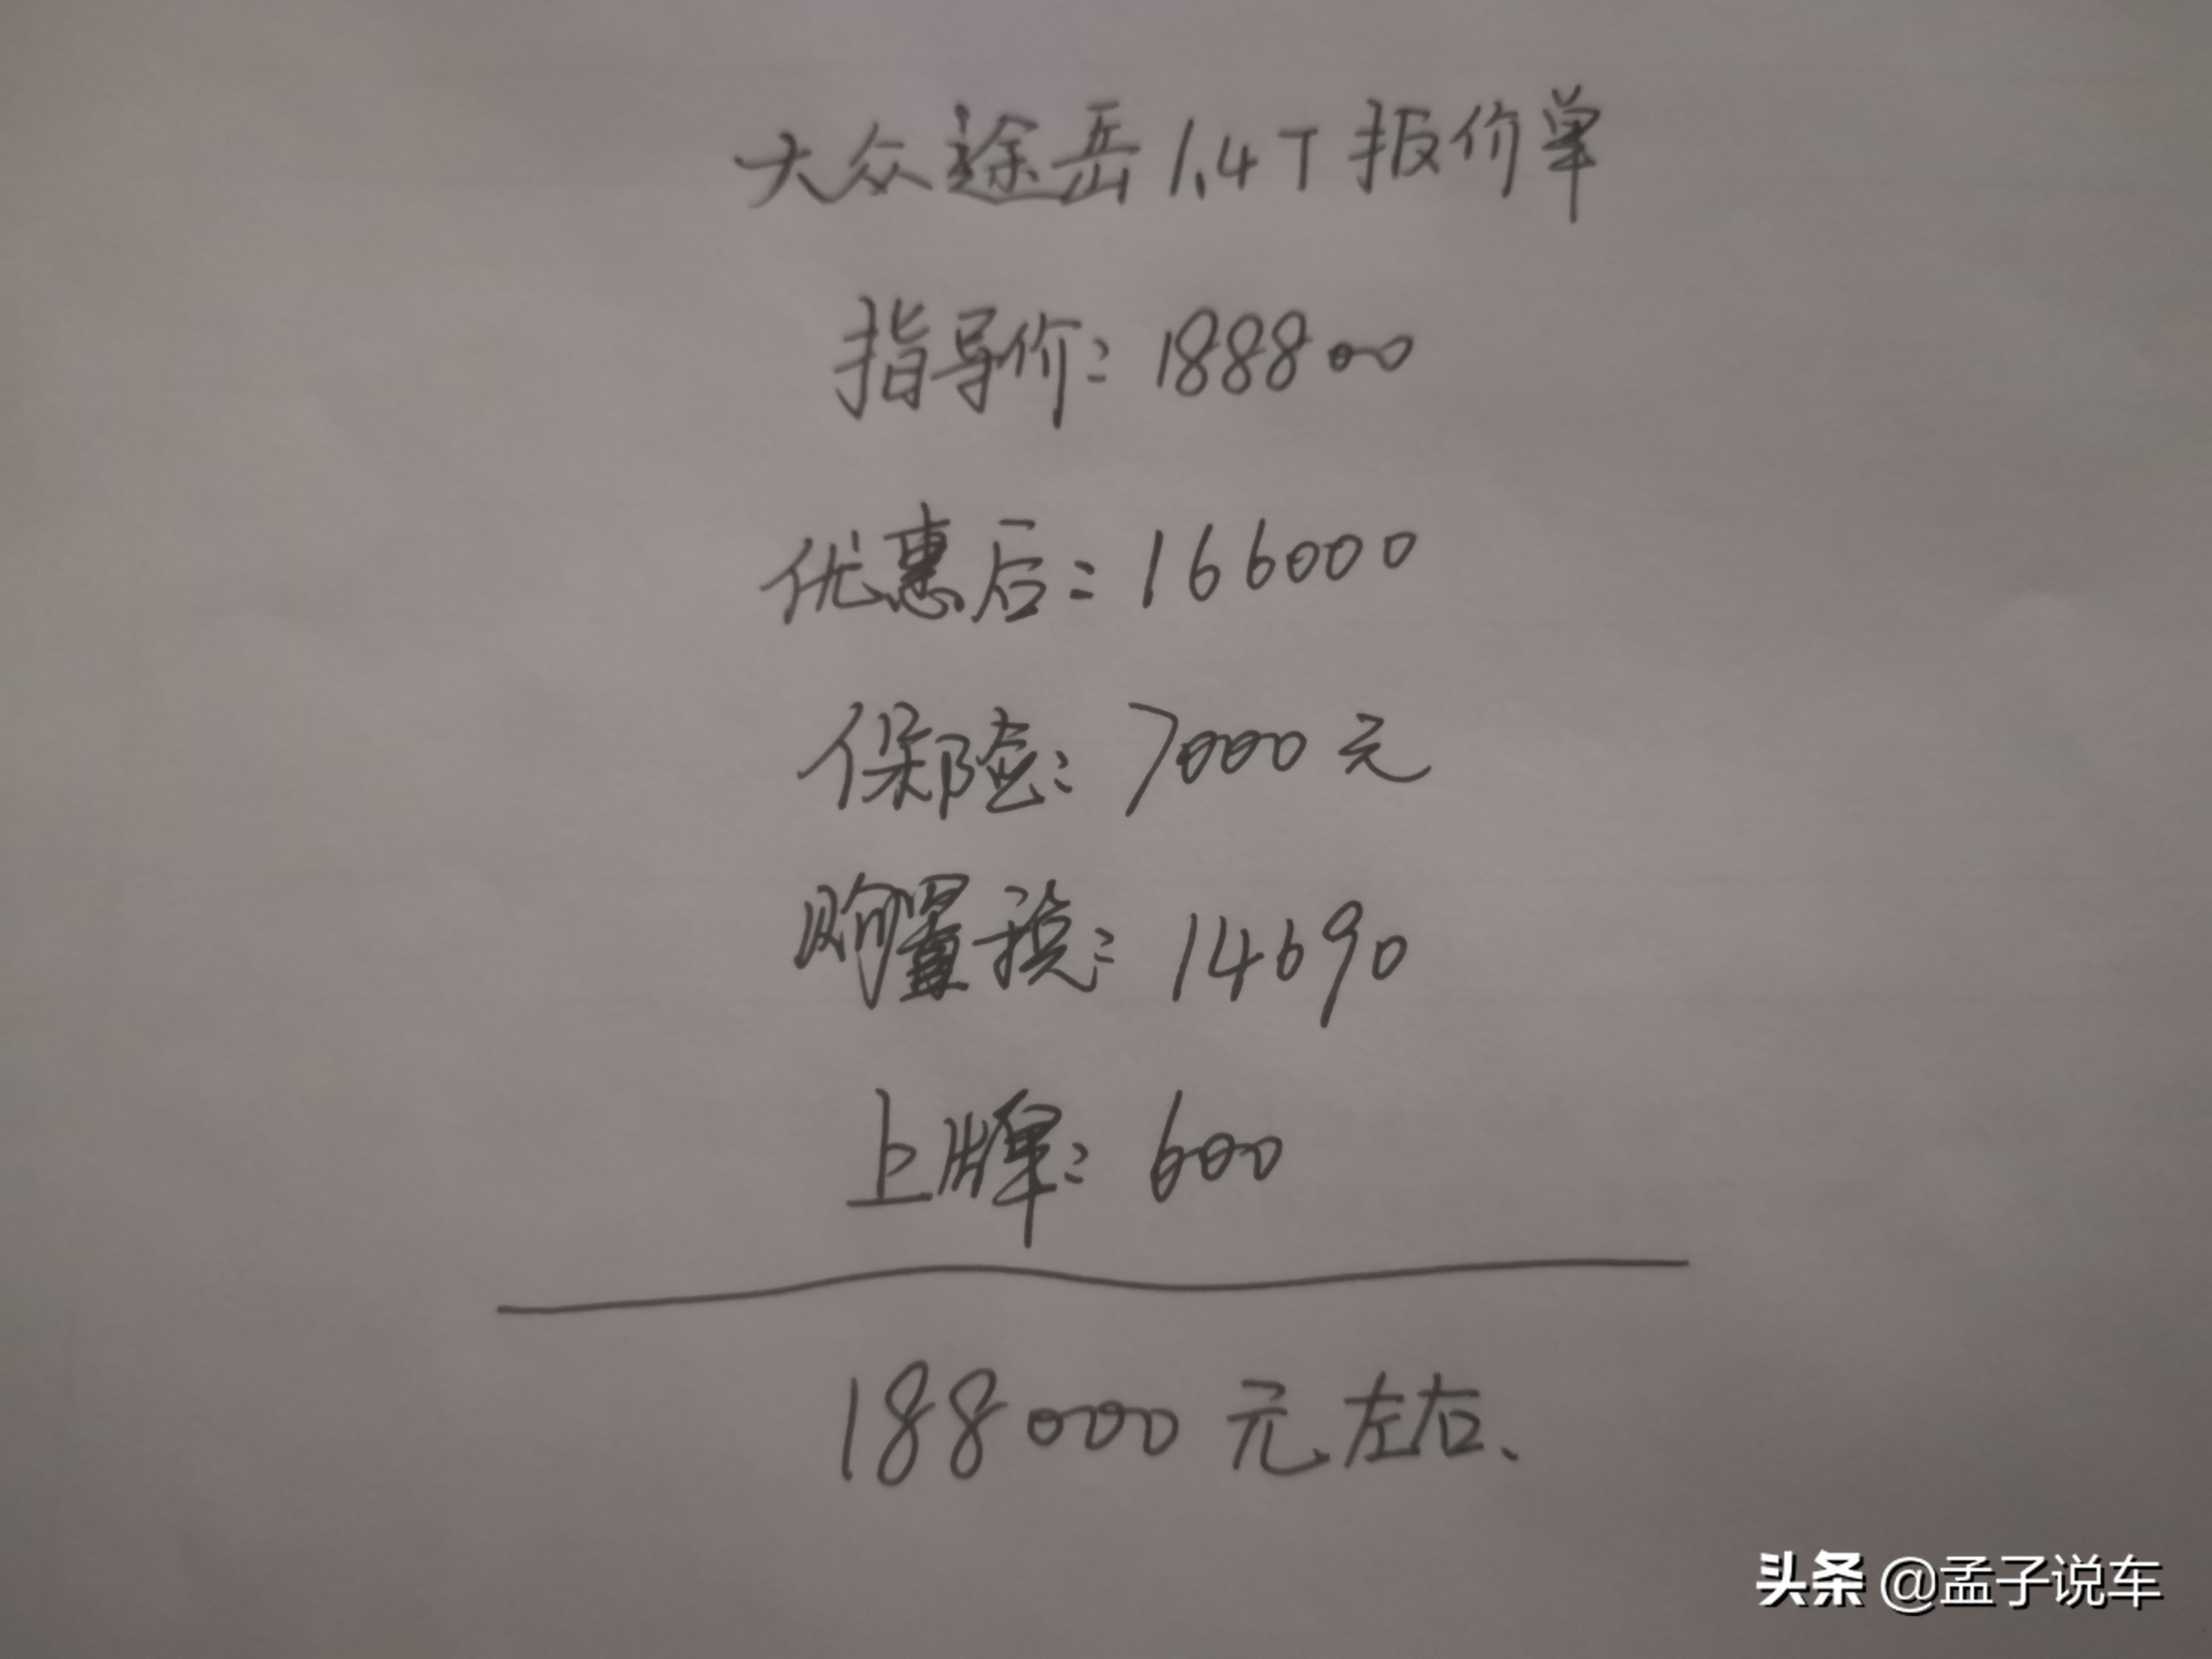 大众途岳1.4T报价单
指导价：188800
优惠后：166000
保险：7000元
购置税：14690
上牌：600
188000元左右、
头条 @孟子说车